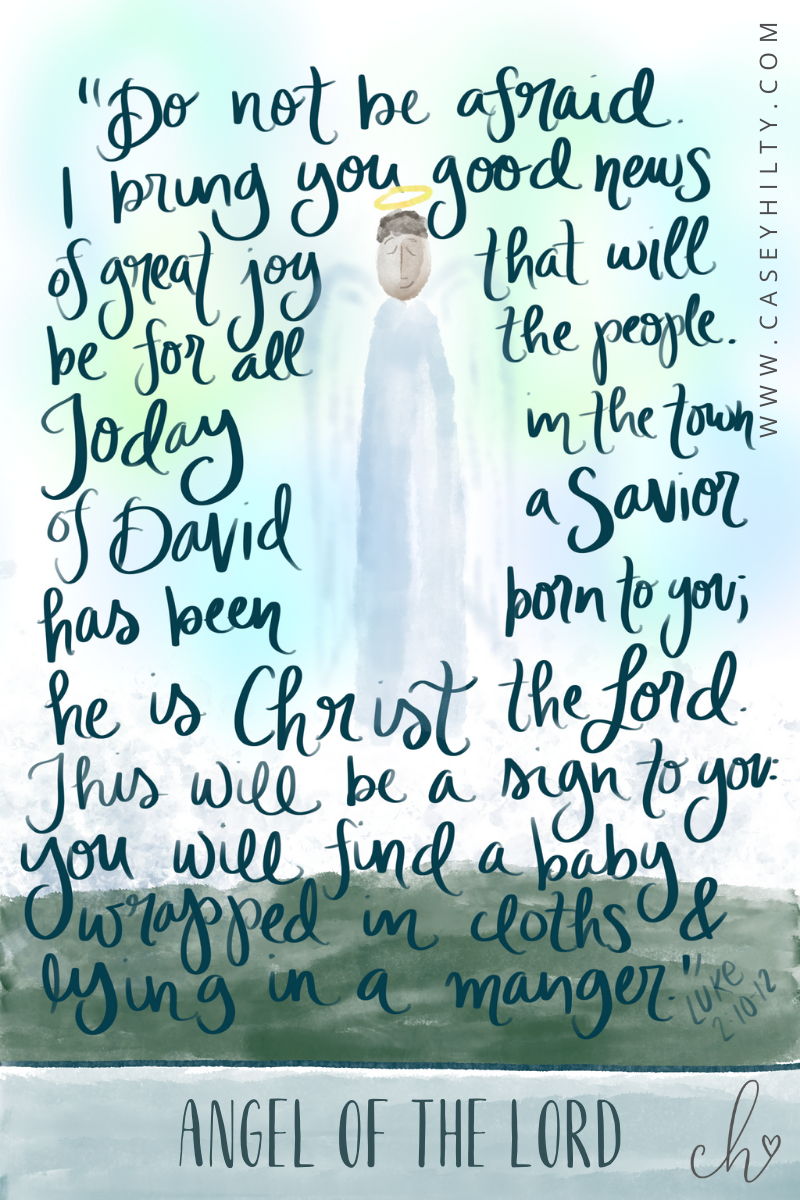 "Do not be afraid.
I bring you good news
of great joy that will
be for all the people.
Today in the town
of David a Savior
has been born to you;
he is Christ the Lord.
This will be a sign to you:
you will find a baby
wrapped in cloths &
lying in a manger."
LUKE
2:10-12
ANGEL OF THE LORD
ch
WWW.CASEYHILTY.COM